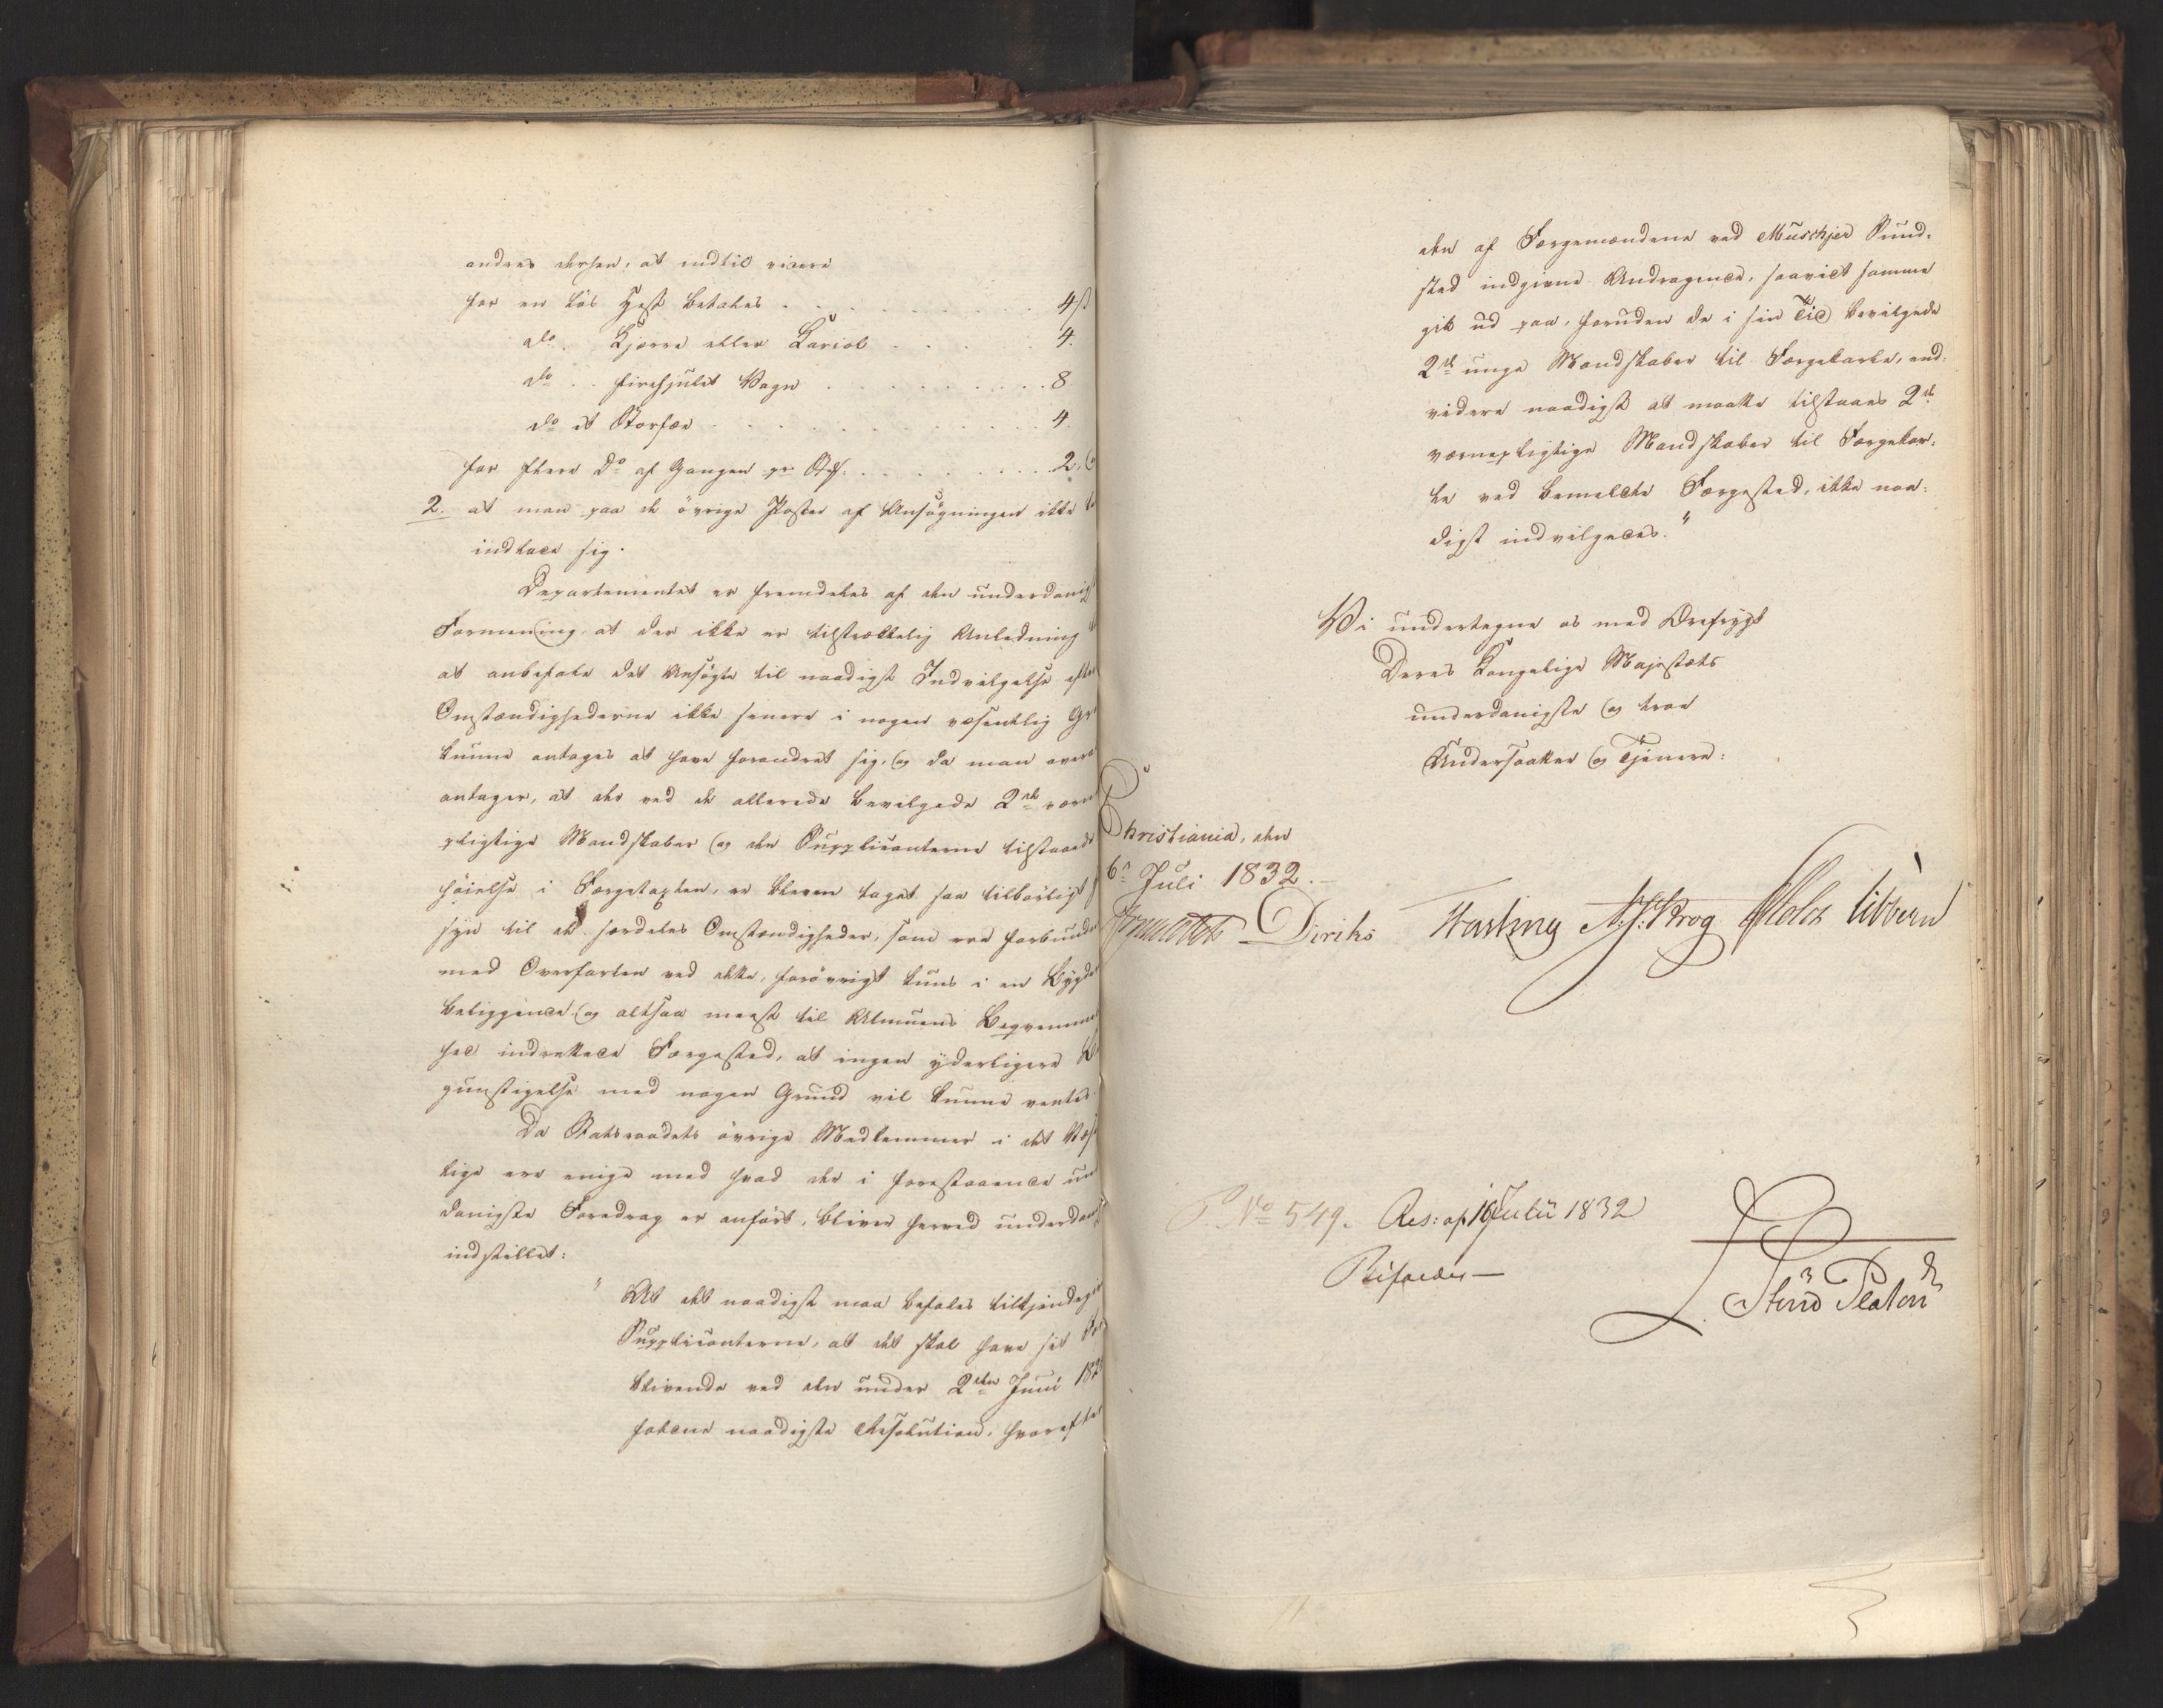 andres derhen, at indtil videre
for en løs Hest betales . . . . 4 ß
do . Kjærre eller Kariol . . . . 4.
do . . firehjulet Vogn . . . . 8
do et Storfæe . . . . 4.
for flere Do af Gangen pr Stk. . . . . 2,
2. at man paa de øvrige Poster af Ansøgningen ikke
indlade sig.
Departementet er fremdeles af den underdanig
Formening, at der ikke er tilstrækkelig Anledning
at anbefale det Ansøgte til naadigst Indvilgelse efter
Omstændighederne ikke senere i nogen væsentlig Gr
kunne antages at have forandret sig, og da man over
antager, at der ved de allerede bevilgede 2de værne
pligtige Mandskaber og den Supplicanterne tilstaaede
høielse i Færgetaxten, er bleven taget saa tilbørligt
syn til de særdeles Omstændigheder, som ere forbundne
med Overfarten ved dette, forøvrigt kuns i en Bygde
beliggende og altsaa meest til Almuens Beqvemme
hed indrettede Færgested, at ingen yderligere Be
gunstigelse med nogen Grund vil kunne ventes.
Da Statsraadets øvrige Medlemmer i det Væs
lige ere enige med hvad der i forestaaende un
danigste Foredrag er anført, bliver herved underdan
indstillet:
" At det naadigst maa befales tilkjendegivet
Supplicanterne, at det skal have sit For
blivende ved den under 2den Juni 18
faldne naadigste Resolution, hvorefter
den af Færgemændene ved Muschjer Sund-
sted indgivne Andragende, saavidt samme
gik ud paa, foruden de i sin Tid bevilgede
2de unge Mandskaber til Færgekarle, end-
videre naadigst at maatte tilstaaes 2de
værnepligtige Mandskaber til Færgekar-
le ved bemeldte Færgested, ikke naa-
digst indvilgedes."
Vi undertegne os med Ærefrygt
Deres Kongelige Majestæts
underdanigste og troe
Undersaatter og Tjenere:
Christiania, den
6te Juli 1832.
Diriks Fasting A. J. Krog Holst Vibbern
P. No 549. Res: af 16 Julii 1832
Bifaldes—